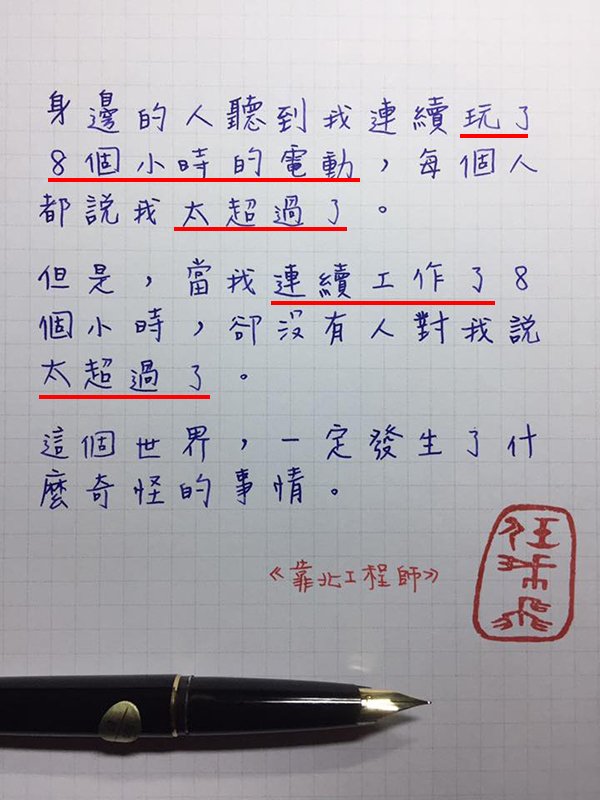 身邊的人聽到我連續玩了
8個小時的電動，每個人
都說我太超過了。
但是，當我連續工作了8
個小時，卻沒有人對我說
太超過了。
這個世界，一定發生了什
麼奇怪的事情。
《靠北工程師》